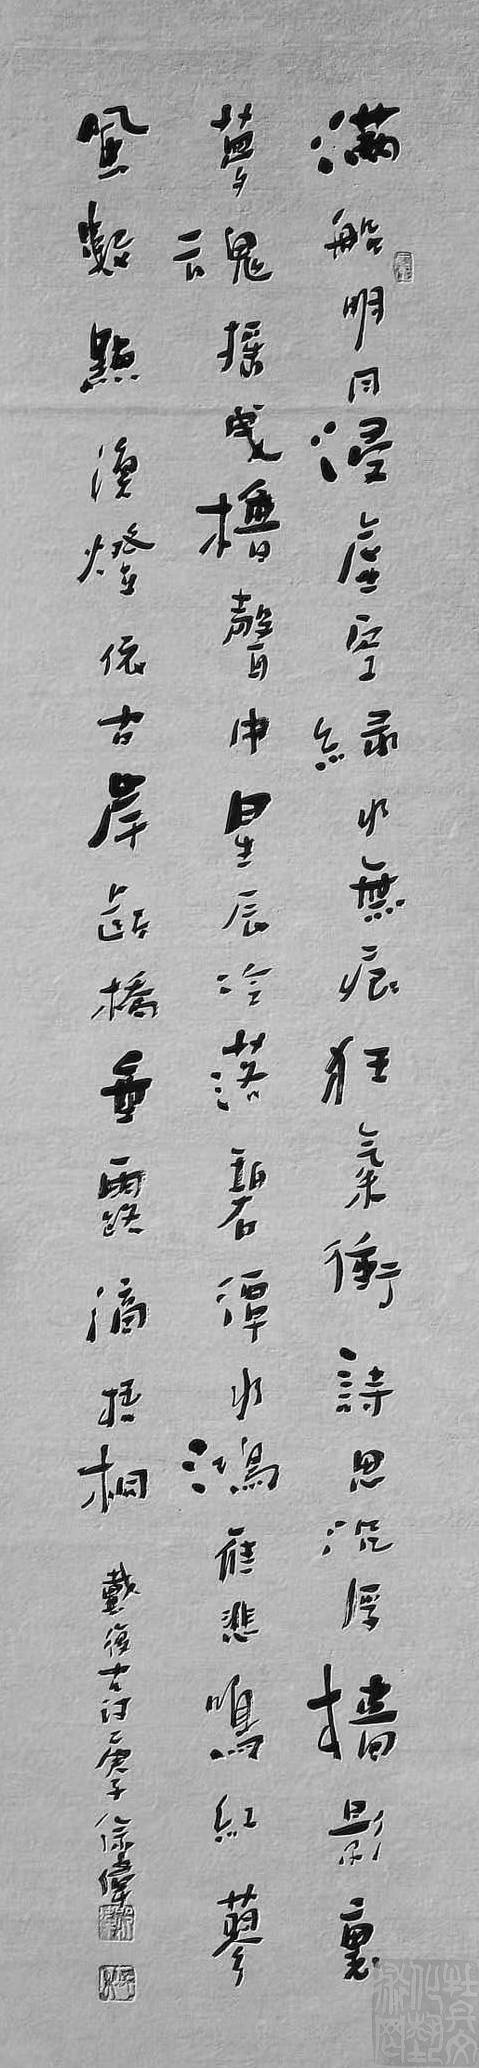 滿船明月浸虛空綠水無痕狂氣衝詩思沉浮檣影裏
夢魂搖曳櫓聲中星辰冷落碧潭水鴻雁悲鳴紅蓼
風數點漁燈依古岸斷橋垂露滴梧桐
戴復古詩庚子徐偉